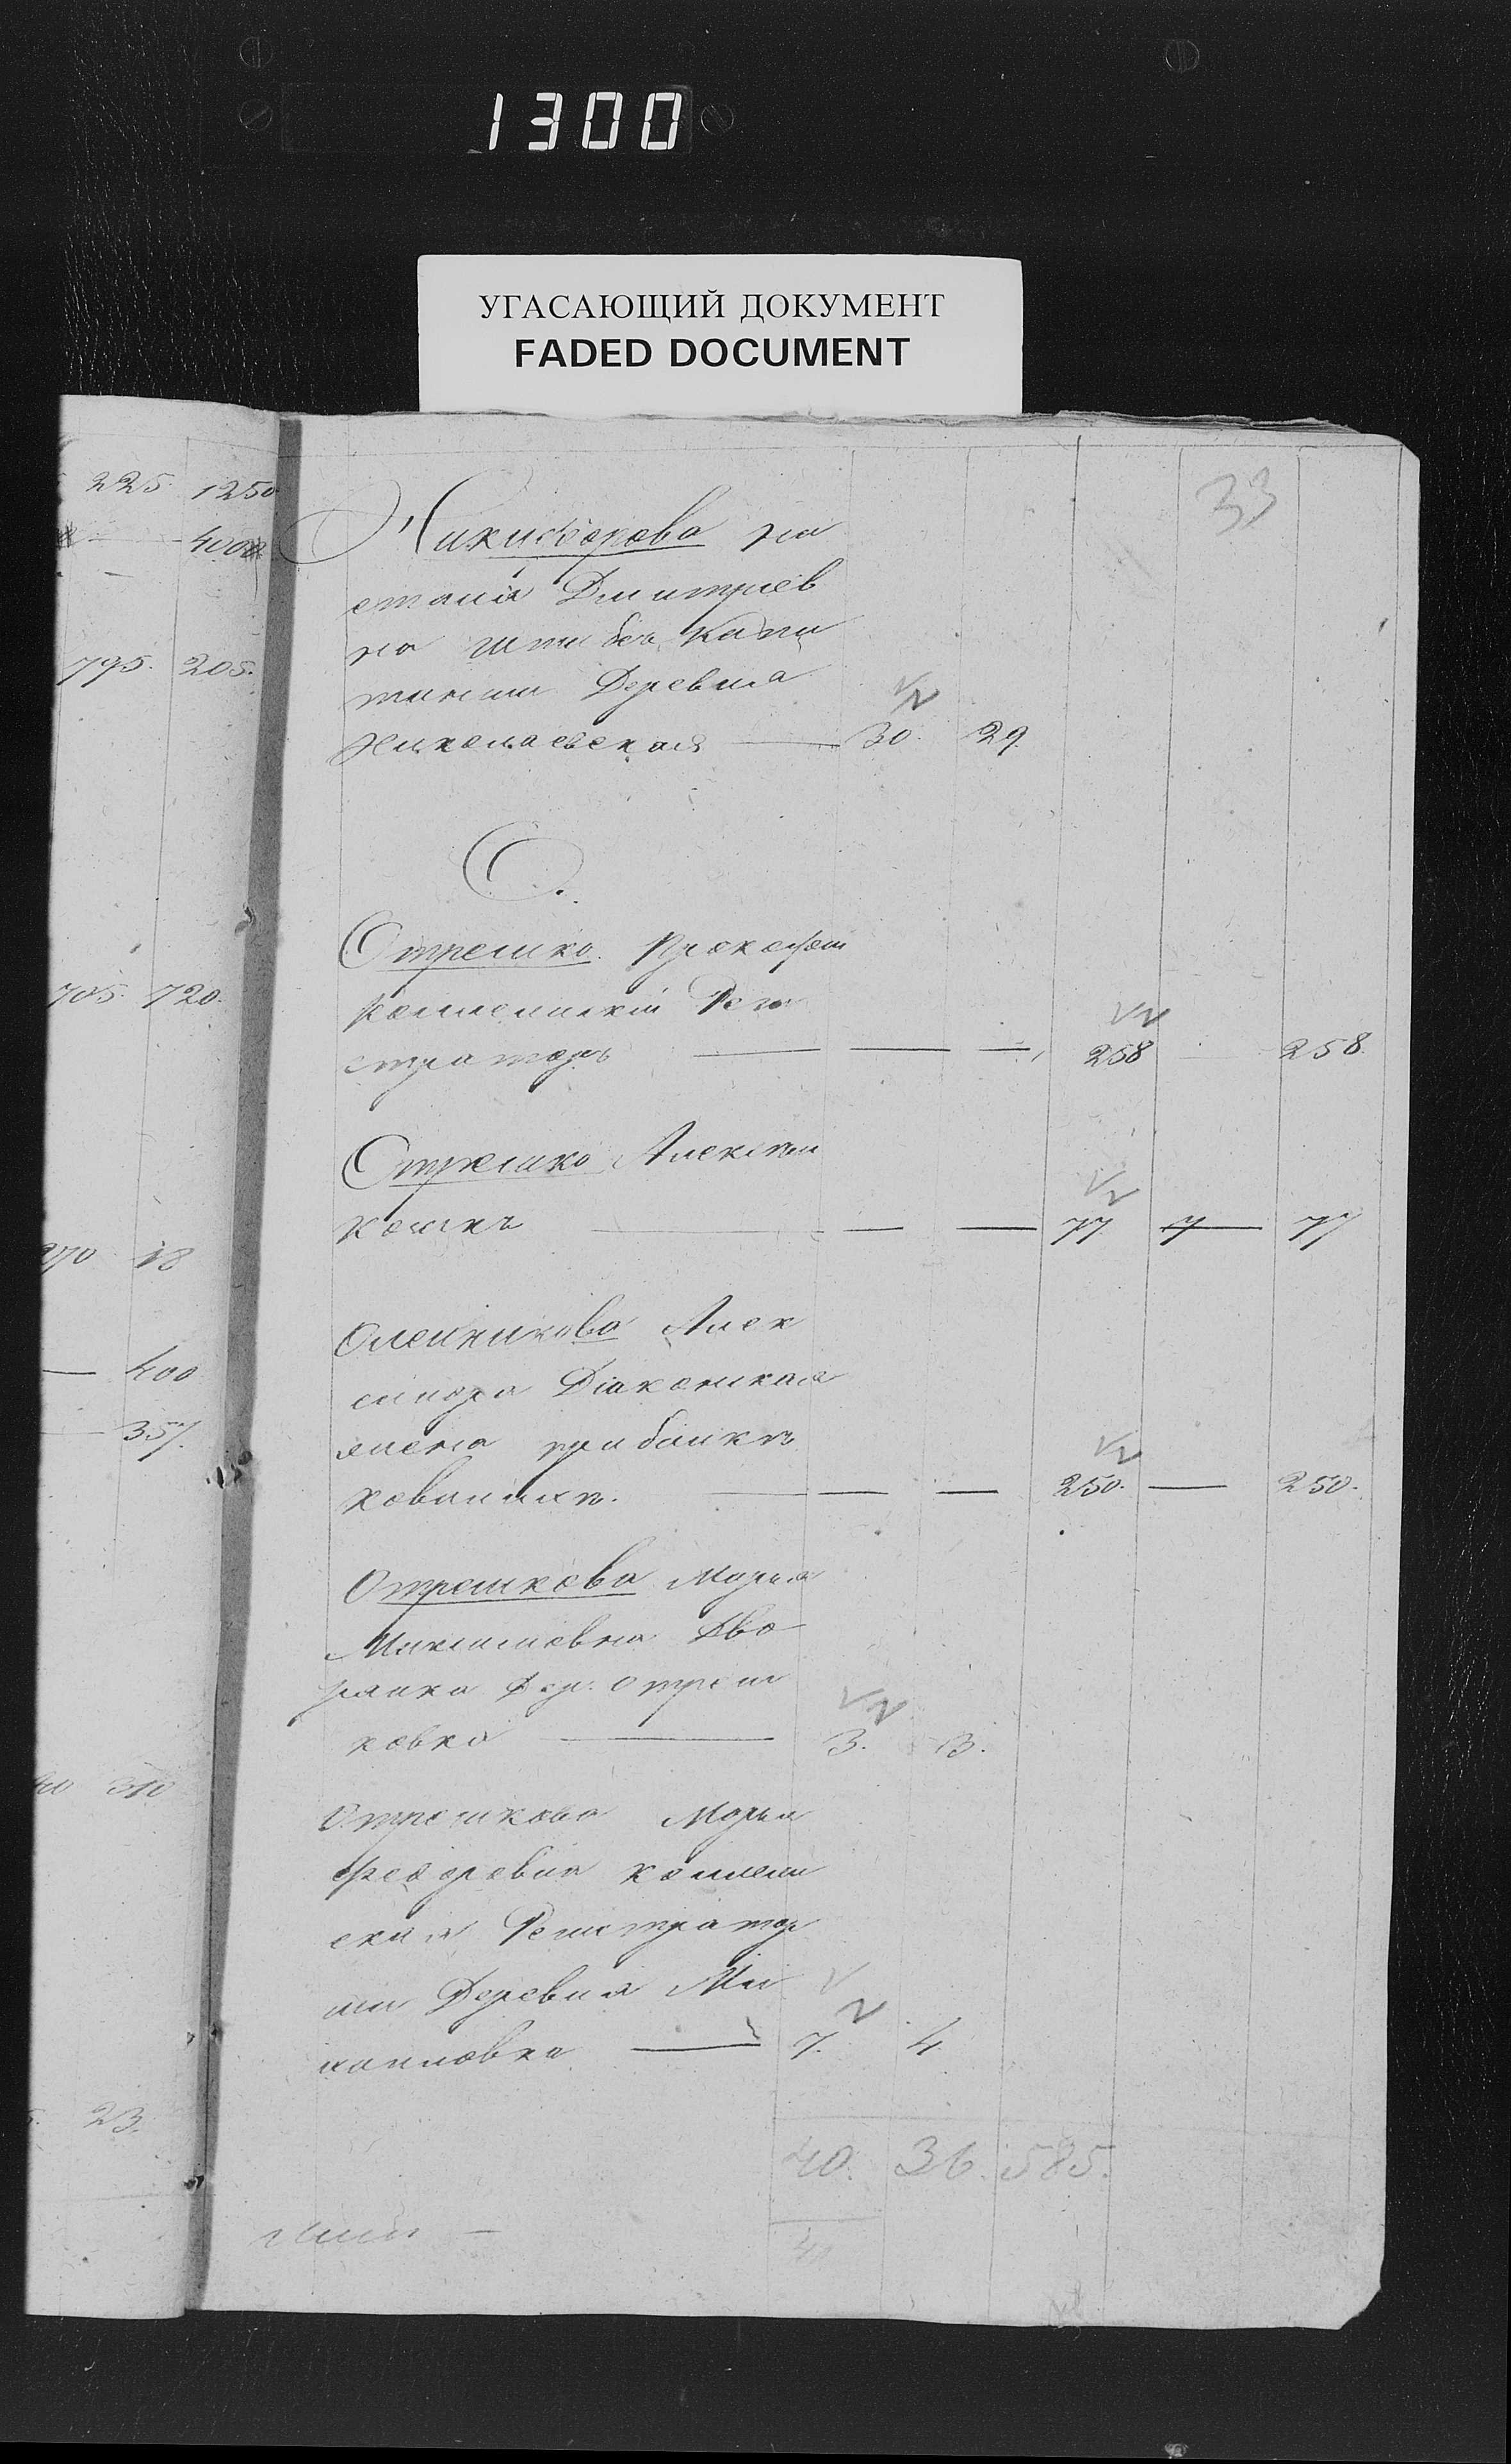 1300
УГАСАЮЩИЙ ДОКУМЕНТ
FADED DOCUMENT
33
225. 1250
4000
795. 205.
705. 720.
270 18
400
357.
310
23.
Никифорова На
стасiя Дмитрiев
на Штабсъ Капи
танши Деревня
Николаевская — 30. 29.
О.
Отрешко Прокофiй
Коллежскiй Реги
страторъ — — — 258 258.
Отрешко Алексей
— — 77 77
Олейникова Алек
сандра Дiаконская
жена
— — — 250. — 250.
Отрешкова Марья
Дво
рянка Дер. Отреш
ковка — 3. 3.
Отрешкова Марья
Федоровна Коллеж
ская Регистратор
ша Деревня Ми
хайловка — 7. 4
40. 36. 585.